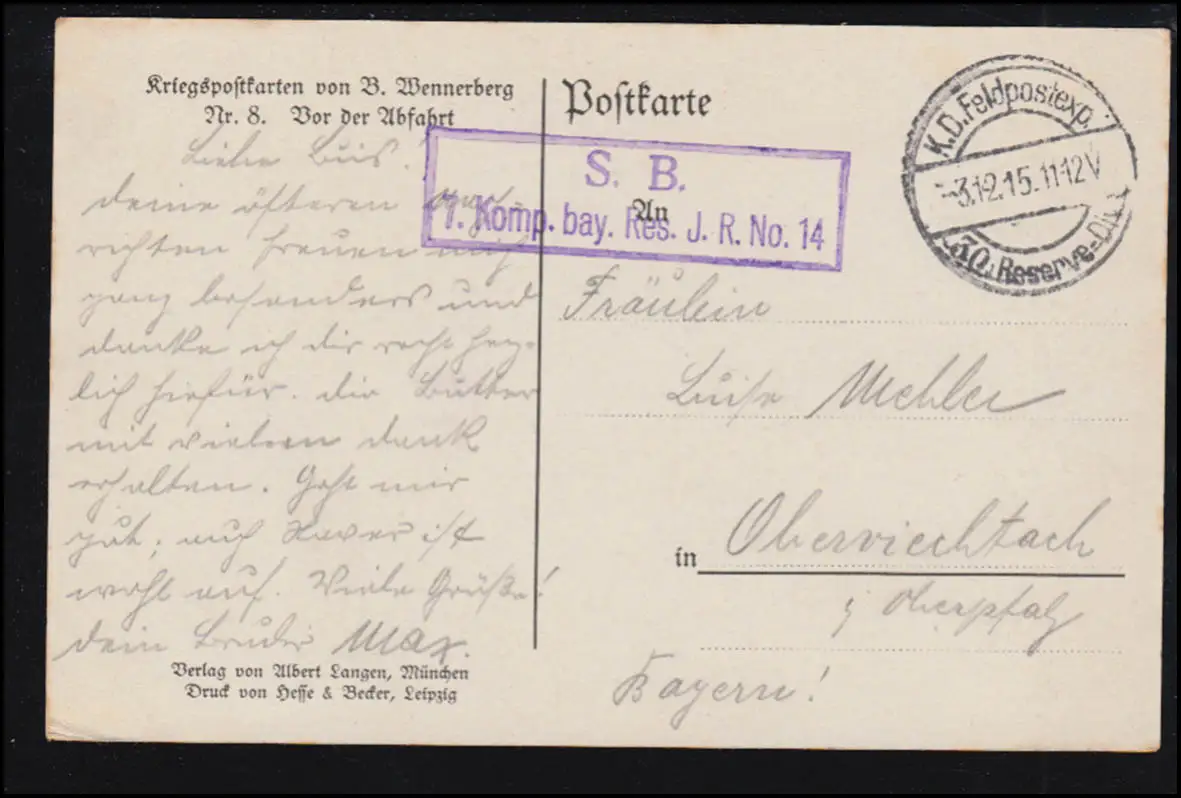 Kriegspostkarten von B. Wennerberg
Nr. 8. Vor der Abfahrt
Liebe Luis!
deine öfteren Nach-
richten freuen mich
ganz besonders und
danke ich dir recht herz-
lich hiefür. die Butter
mit vielem dank
erhalten. Geht mir
gut; auch Xaver ist
wohl auf. Viele Grüße!
dein Bruder Max.
Verlag von Albert Langen, München
Druck von Hesse & Becker, Leipzig
Postkarte
S. B.
7. Komp. bay. Res. J. R. No. 14
An
K.D. Feldpostexp.
-3.12.15. 11-12V
30. Reserve-Div.
Fräulein
Luise Mehler
in Oberviechtach
Oberpfalz
Bayern!